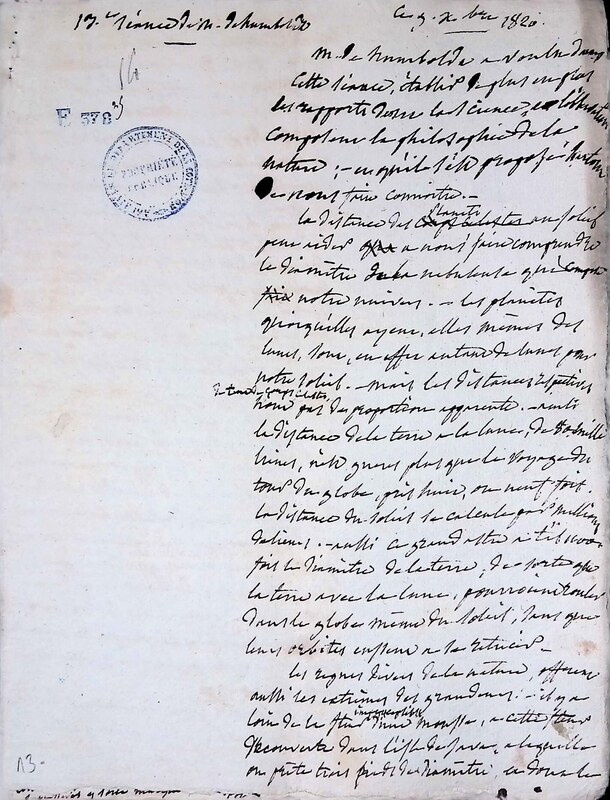 13.e séance de M. de humboldt
Ce 9 Xbre 1820.
M. de humboldt a voulu dans
Cette séance, établir de plus en plus
les rapports dont la science, et
Composent la philosophie de la
nature, - et qu'il s'est proposé
De nous faire connoitre. -
la distance des planètes au soleil
peut aider a nous faire comprendre
le diamètre de la nebuleuse qui Compose
notre univers. - les planètes
quoiqu'elles ayent, elles mêmes des
lunes, sont, en effet autant de lunes pour
notre soleil. - mais les distances respectives
de tous ces corps celestes
n'ont pas de proportion apparente. - ainsi
la distance de la terre a la lune, de 80 mille
lieues, n'est gueres plus que le voyage du
tour du globe, pris huit, ou neuf fois.
la distance du soleil se calcule par millions
de lieues. - aussi ce grand astre a t'il
fois le diamètre de la terre, de sorte que
la terre avec la lune, pourroient rouler
dans le globe même du soleil, sans que
leurs orbites eussent a se rétrécir. -
les regnes divers de la nature, offrent
aussi les extrêmes des grandeurs. - il y a
imperceptible
loin de la fleur d'une mousse, a cette fleur
Découverte dans l'isle de Java, a laquelle
on prête trois pieds de diamètre, et dont le
E 378
PROPRIÉTÉ
13-